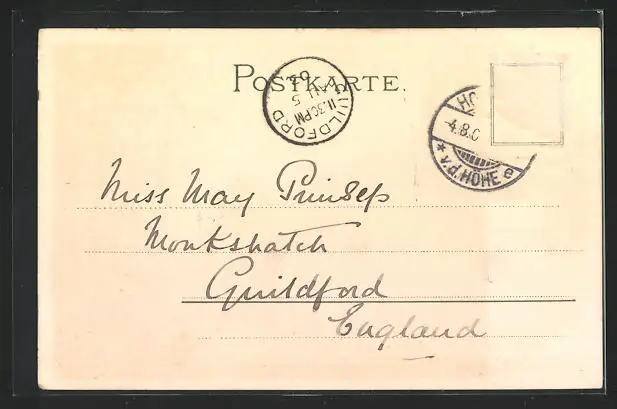 POSTKARTE.
GUILDFORD
11.30PM
AU 5
03
HO
-4.8.0
* v.d. HÖHE a
Miss May Prinsep
Monkshatch
Guildford
England